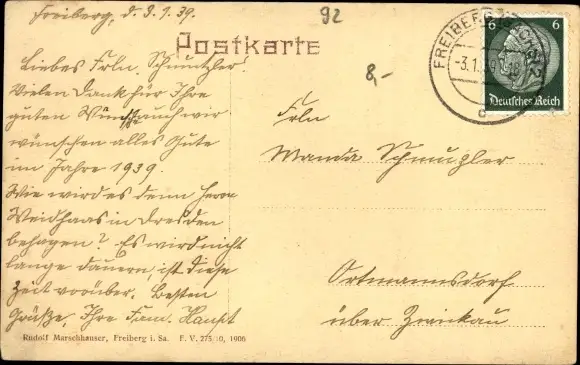 Freiberg, d. 3.1.39.
92
Postkarte
8,-
FREIBERG (SACHS) 2
-3.1.39
6 6
Deutsches Reich
Liebes Frln. Schmutzler!
Vielen Dank für Ihre
guten Wünsche auch wir
wünschen alles Gute
im Jahre 1939.
Wie wird es denn Herrn
Weidhaas in Dresden
behagen? Es wird nicht
lange dauern, ist diese
Zeit vorüber. Besten
Grüße, Ihre Fam. Haupt
Frln
Schmutzler
Ortmannsdorf
über Zwickau
Rudolf Marschhauser, Freiberg i. Sa. F. V. 275 10, 1906